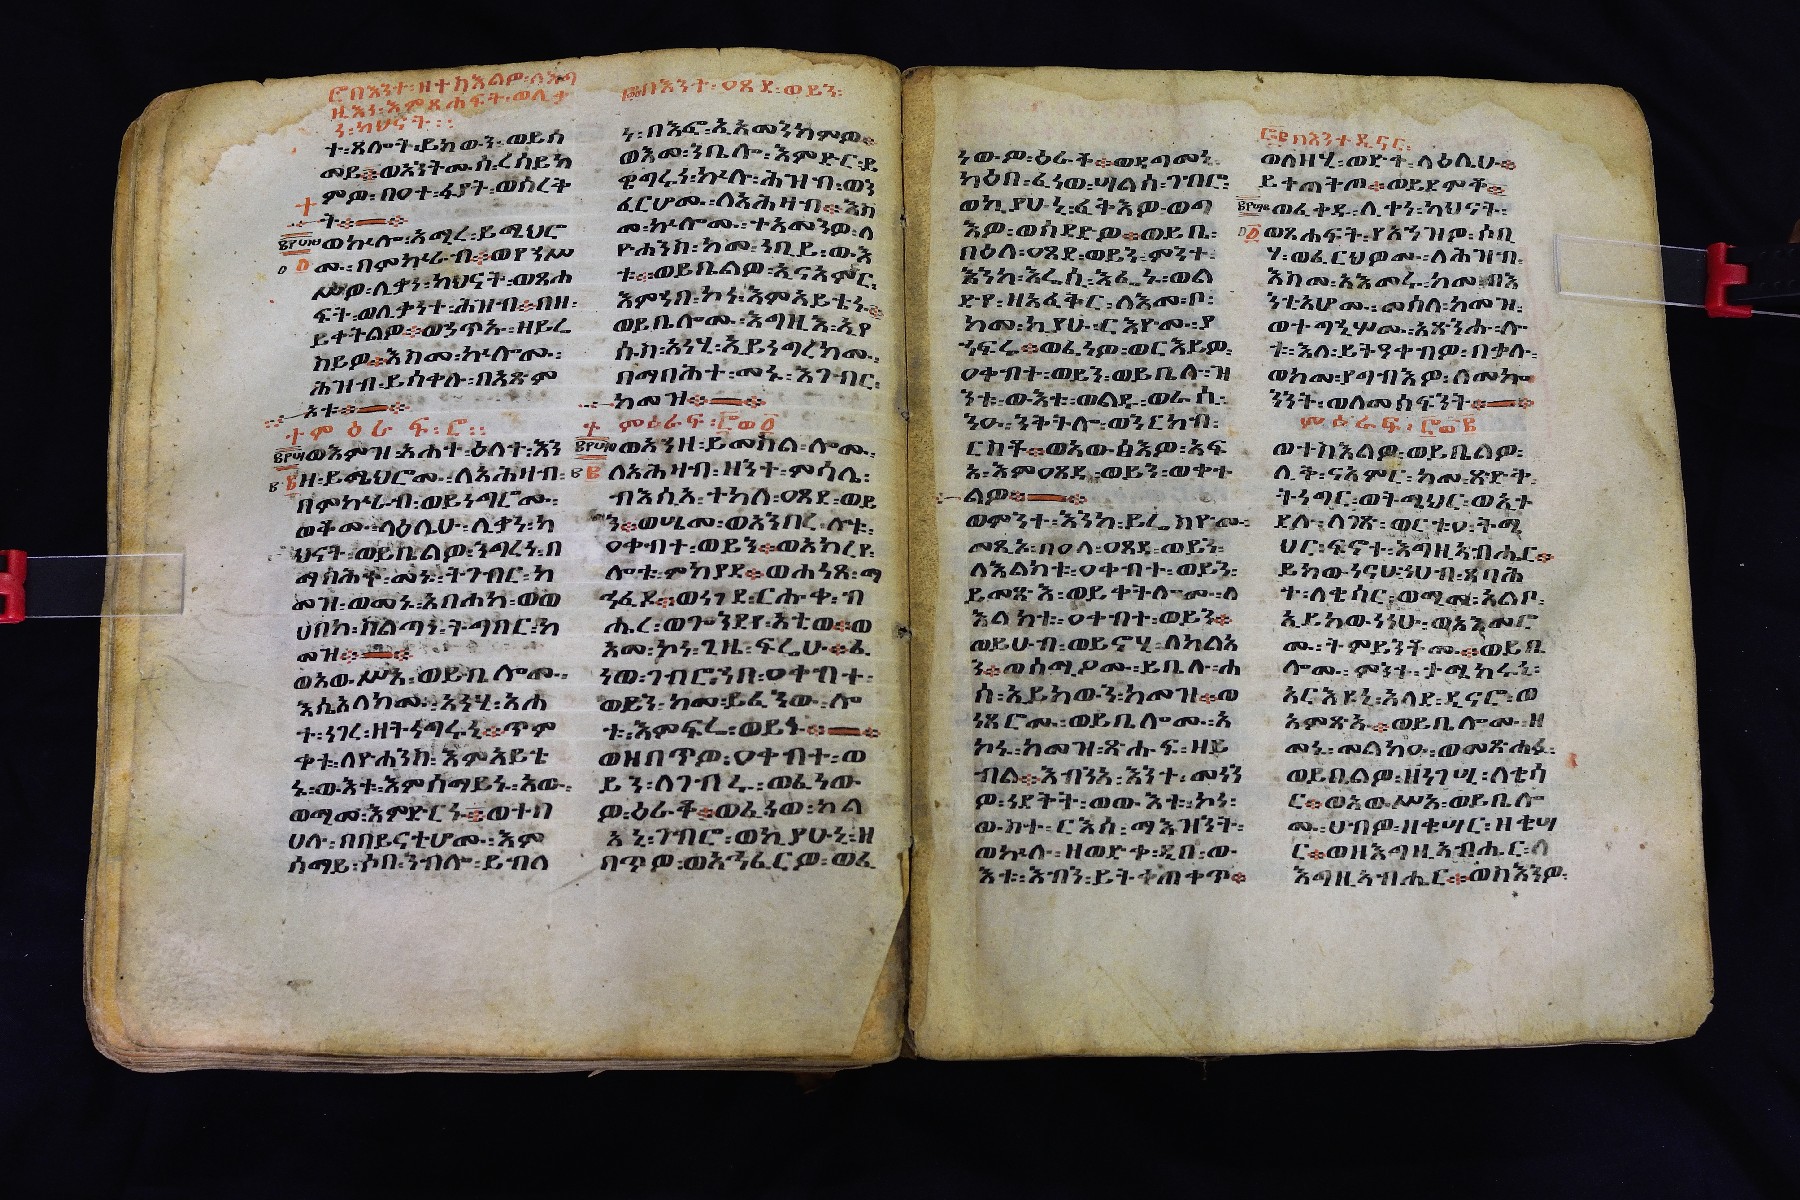 ፻በእንተ፡ዘተስእልዎ፡ለእግ
ዚእነ፡እምጸሐፍት፡ወሊቃ
ነ፡ካህናት፡፡
ተ፡ጸሎት፡ይከውን፡ወይሰ
መይ፡ወአንትሙሰ፡ረሰይክ
ምዎ፡በዐተ፡ፈያት፡ወሰረቅት
ት፨
ወኵሎ፡አሚረ፡ይሜህሮ
ሙ፡በምኵራብ፡ወየኀሥ
ሥዎ፡ሊቃነ፡ካህናት፡ወጸሐ
ፍት፡ወሊቃንተ፡ሕዝብ፡በዘ፡
ይቀትልዎ፡ወኀጥኡ፡ዘይሬ
ስይዎ፡እስመ፡ኵሎሙ፡
ሕዝብ፡ይሰቀሉ፡በአጽም
ኦቱ፨
ምዕራፍ፡፻፡፡
ወእምዝ፡አሐተ፡ዕለተ፡እን
ዘ፡ይሜህሮሙ፡ለአሕዛብ፡
በምኵራብ፡ወይነግሮሙ፡
ወቆሙ፡ላዕሌሁ፡ሊቃነ፡ካ
ህናት፡ወይቢልዎ፡ንግረነ፡በ
ማበሕተ፡መኑ፡ትገብር፡ከ
መዝ፡ወመኑ፡አበሐከ፡ወወ
ሀበከ፡ስልጣነ፡ትግበር፡ከ
መዝ፨
ወአውሥአ፡ወይቢሎሙ፡
እሴአለክሙ፡አነሂ፡አሐ
ተ፡ነገረ፡ዘትነግሩኒ፡ጥም
ቀቱ፡ለዮሐንስ፡እምአይቴ
ኑ፡ውእቱ፡እምሰማይኑ፡አው፡
ወሚመ፡እምድርኑ፡ወተበ
ሀሉ፡በበይናቲሆሙ፡እም
ሰማይ፡ሶበ፡ንብሎ፡ይብለ
በእንተ፡ዐጸደ፡ወይን፡
ነ፡በእፎ፡ኢአመንክምዎ፡
ወእመ፡ንቢሎ፡እምድር፡ይ
ዌግሩነ፡ኵሉ፡ሕዝብ፡ወን
ፈርሆሙ፡ለአሕዛብ፡እስ
መ፡ኵሎሙ፡ተአመንዎ፡ለ
ዮሐንስ፡ከመ፡ነቢይ፡ውእ
ቱ፡ወይቢልዎ፡ኢናአምር፡
እምኀበ፡ኮነ፡እምአይቴኑ፡
ወይቢሎሙ፡እግዚእ፡ኢየ
ሱስ፡አነሂ፡ኢይነግረክሙ፡
በማበሕተ፡መኑ፡እገብር፡
ከመዝ፨
ምዕራፍ፡፻፩
ወአንዘ፡ይመስል፡ሎሙ፡
ለአሕዛብ፡ዘንተ፡ምሳሌ፡
ብእሲአ፡ተከለ፡ዐጸደ፡ወይ
ን፡ወሤመ፡ወአንበረ፡ሎቱ፡
ዐቀብተ፡ወይን፡ወአከረየ፡
ሎቱ፡ምክያደ፡ወሐነጸ፡ማ
ኅፈደ፡ወነገደ፡ርሑቀ፡ብ
ሔረ፡ወጐንደየ፡አቲወ፡ወ
እመ፡ኮነ፡ጊዜ፡ፍሬሁ፡ፈ
ነወ፡ገብሮ፡ኀበ፡ዐቀብተ፡
ወይን፡ከመ፡ይፈንው፡ሎ
ቱ፡እምፍሬ፡ወይኑ፨
ወዘበጥዎ፡ዐቀብተ፡ወ
ይን፡ለገብሩ፡ወፈነው
ዎ፡ዕራቆ፡ወፈነወ፡ካል
አነ፡ገብሮ፡ወኪያሁኒ፡ዘ
በጥዎ፡ወአኅፈርዎ፡ወፈ
ነውዎ፡ዕራቆ፡ወደግመነ
ካዕበ፡ፈነወ፡ሣልሰ፡ገብሮ፡
ወኪያሁኒ፡ፈትእዎ፡ወጣ
እዎ፡ወሰደድዎ፡ወይቢ፡
በዕለ፡ዐጸደ፡ወይን፡ምንተ፡
እንከ፡እሬሲ፡እፈኑ፡ወል
ድየ፡ዘአፈቅር፡ለእመ፡ቦ፡
ከመ፡ኪያሁ፡ርእዮሙ፡ያ
ኀፍሩ፡ወፈነዎ፡ወርእይዎ፡
ዐቀብተ፡ወይን፡ወይቢሉ፡ዝ
ንቱ፡ውእቱ፡ወልዱ፡ወራሲ፡
ንዑ፡ንቅትሎ፡ወንርከብ፡
ርስቶ፡ወአውፅእዎ፡አፍ
አ፡እምዐጸደ፡ወይን፡ወቀተ
ልዎ፨
ወምንተ፡እንከ፡ይሬስዮሙ፡
መጺኦ፡በዐለ፡ዐጸደ፡ወይን፡
ለእልክቱ፡ዐቀብተ፡ወይን፡
ይመጽእ፡ወይቀትሎሙ፡ለ
እልክቱ፡ዐቀብተ፡ወይን፡
ወይሁብ፡ወይኖሂ፡ለካልአ
ን፡ወሰሚዖሙ፡ይቢሉ፡ሐ
ሰ፡አይከውን፡ከመዝ፡ወ
ነጸሮሙ፡ወይቢሎሙ፡አ
ኮኑ፡ከመዝ፡ጽሑፍ፡ዘይ
ብል፡እብንአ፡እንተ፡መነን
ዎ፡ነደቅት፡ወውእቱ፡ኮነ፡
ውስተ፡ርእሰ፡ማእዝንት፡
ወኵሉ፡ዘወድቀ፡ዲበ፡ው
እቱ፡እብን፡ይትቀጠቀጥ፡
በእንተ፡ዲናር፡
ወለዘሂ፡ወደቀ፡ላዕሌሁ፡
ይቀጠቅጦ፡ወይደምቆ፡
ወፈቀዱ፡ሊቀነ፡ካህናት፡
ወጸሐፍት፡የአኀዝዎ፡ሶቢ
ሃ፡ወፈርህዎሙ፡ለሕዝብ፡
እስመ፡አእመሩ፡ከመ፡በእ
ንቲአሆሙ፡መሰለ፡ከመዝ፡
ወተግኅሡሙ፡አጽንሑ፡ሎ
ቱ፡እለ፡ይትዓቀብዎ፡በቃሉ፡
ወከመ፡ያግብእዎ፡ለመኰ
ንንት፡ወለመሳፍንት፨
ምዕራፍ፡፻፪
ወተስእልዎ፡ወይቢልዎ፡
ሊቅ፡ናአምር፡ከመ፡ጽድቀ፡
ትነግር፡ወትሜህር፡ወኢት
ደሉ፡ለገጽ፡ወርቱዐ፡ትሜ
ህር፡ፍኖተ፡እግዚአብሔር፡
ይከውነናሁ፡ነሀብ፡ጸባሕ
ተ፡ለቄሳር፡ወሚመ፡አልቦ፡
ኢይከውነነሁ፡ወአእመሮ
ሙ፡ትምይንቶሙ፡ወይቢ
ሎሙ፡ምንተ፡ታሜክሩኒ፡
አርእዩኒ፡አላደ፡ዲናሮ፡ወ
አምጽኡ፡ወይቢሎሙ፡ዘ
መኑ፡መልክዑ፡ወመጽሐፉ፡
ወይቢልዎ፡ዘነገሢ፡ለቄሳ
ር፡ወአውሥአ፡ወይቢሎ
ሙ፡ሀብዎ፡ዘቄሣር፡ዘቄሣ
ር፡ወዘእግዚአብሔር፡ለ
እግዚአብሔር፡ወስእንዎ፡